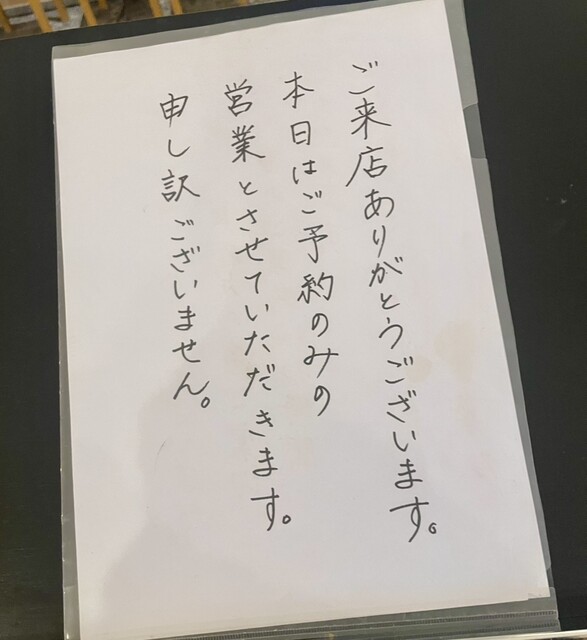 ご来店ありがとうございます。
本日はご予約のみの
営業とさせていただきます。
申し訳ございません。